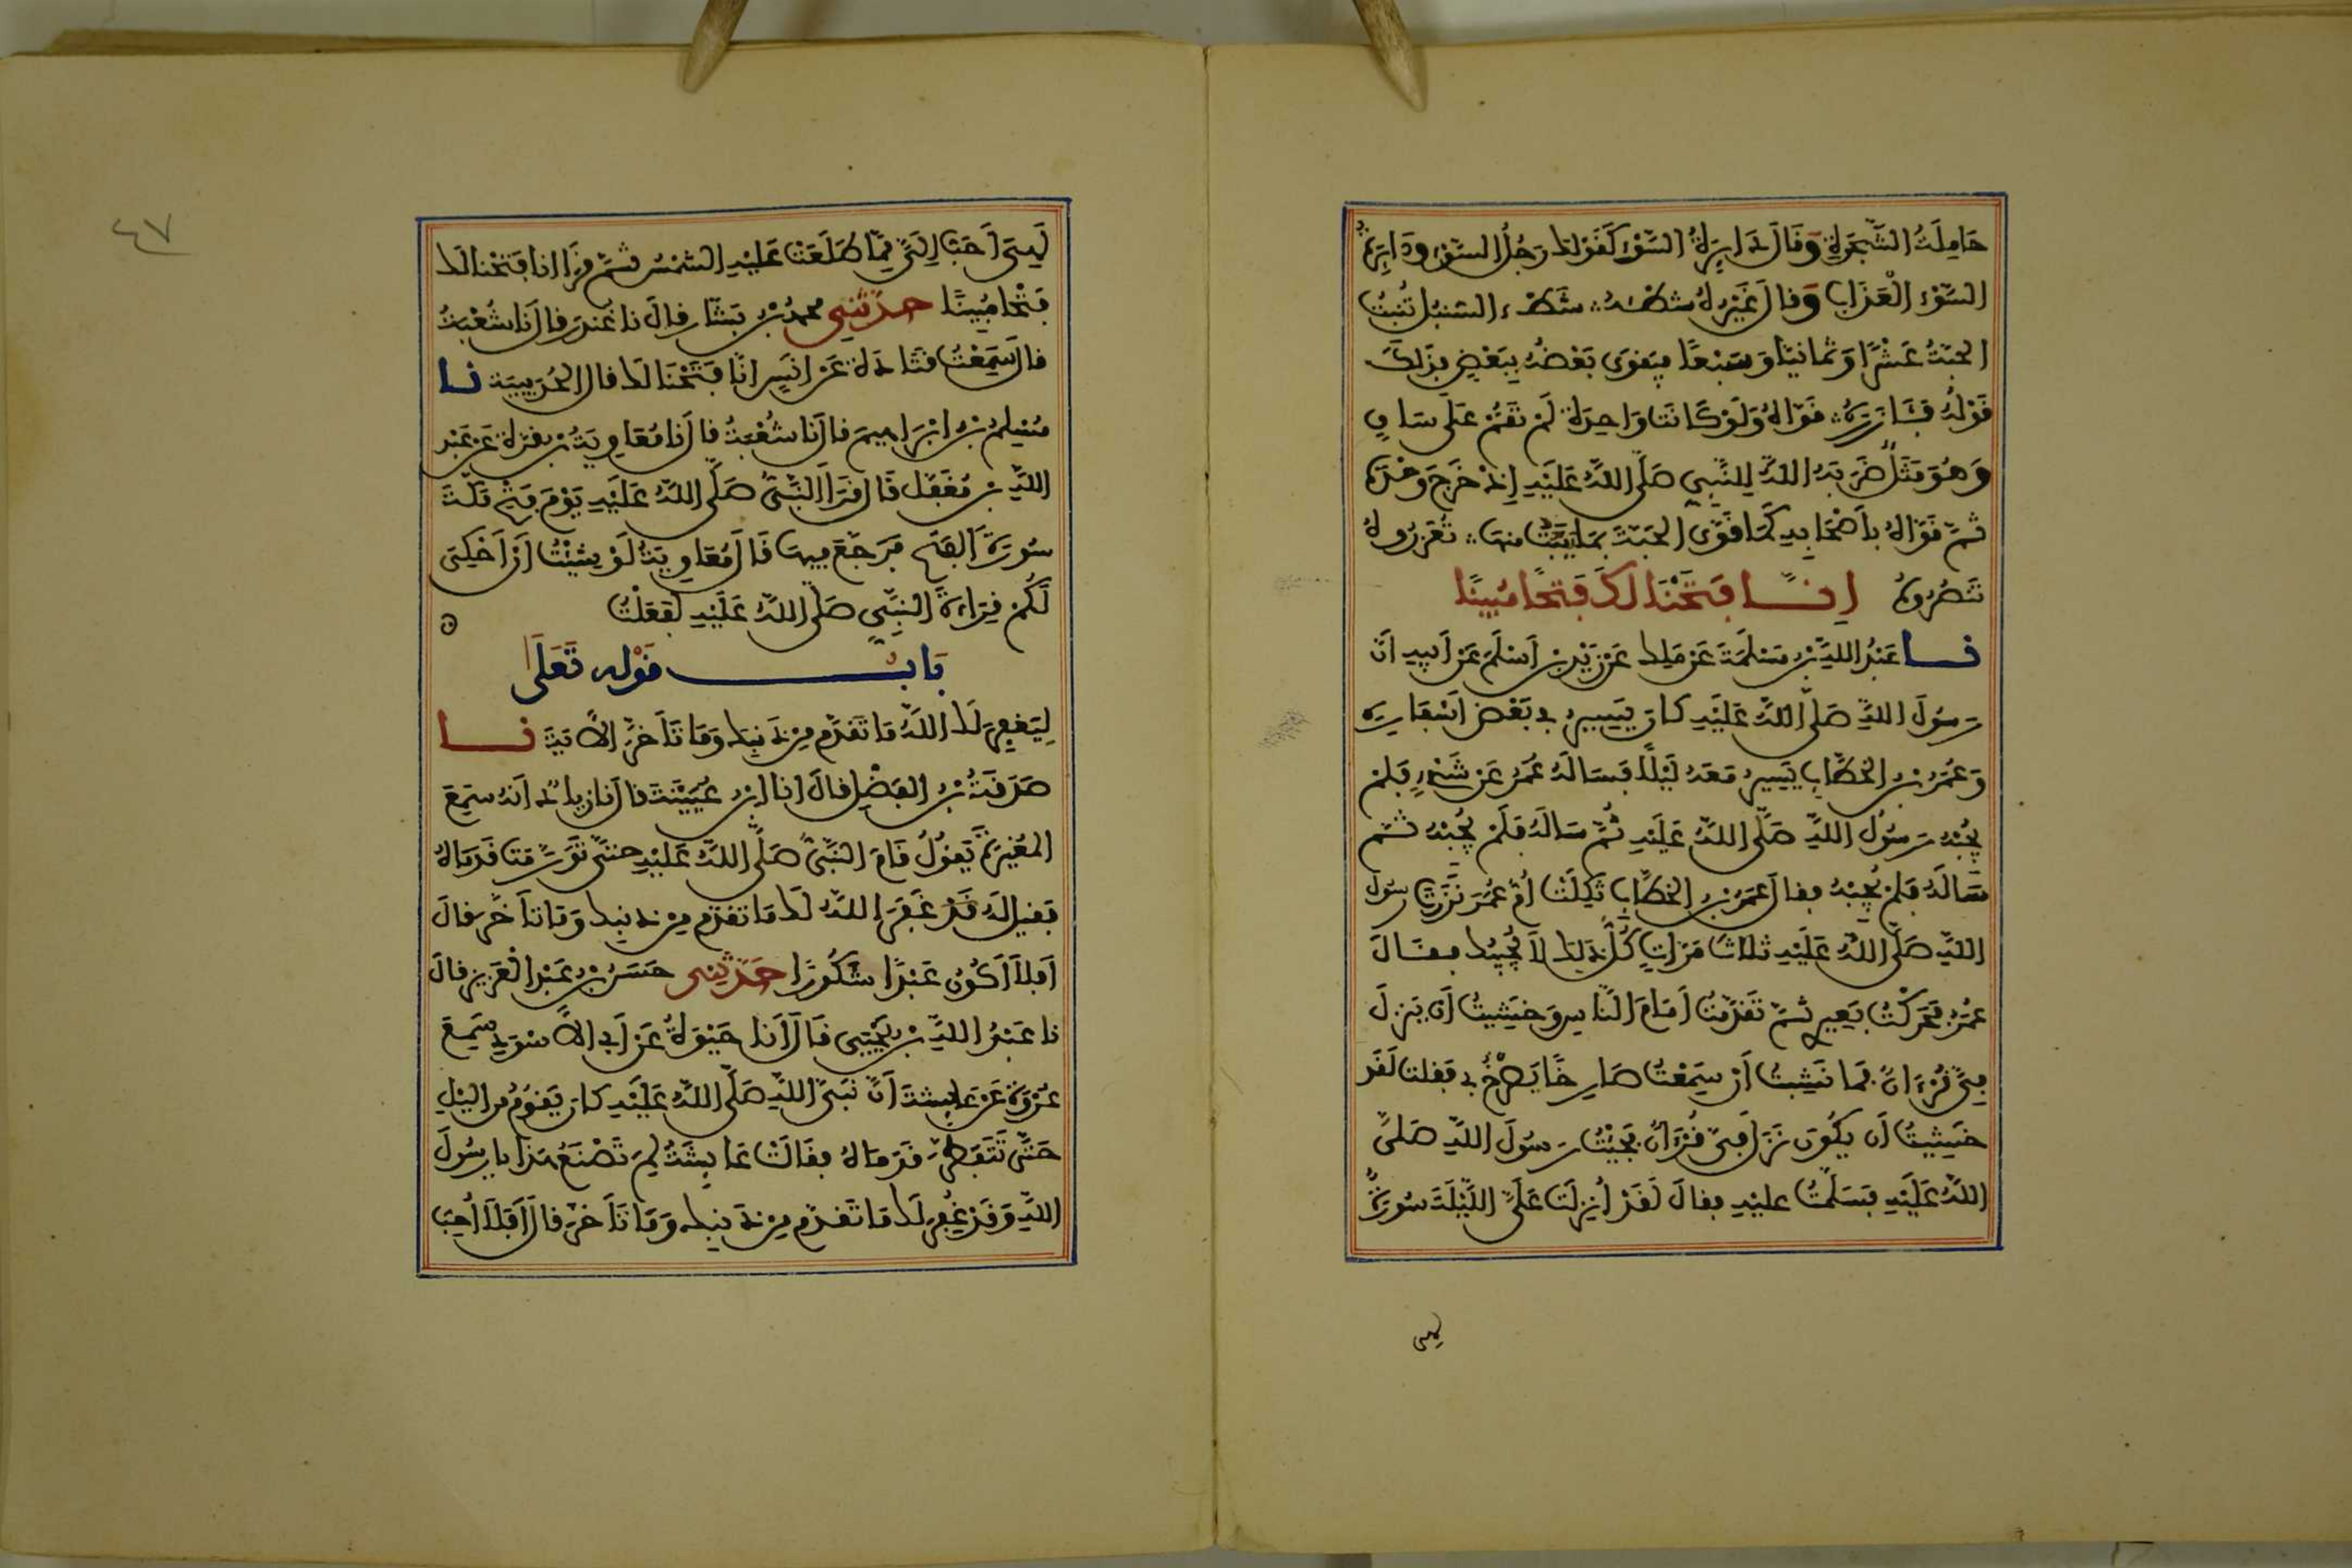 حَامِلَةُ الشَّجَرَةِ وَقَالَ دَايِرَةُ السَّوْءِ كَقَوْلِكَ رَجُلُ السَّوْءِ وَدَايِرَةُ
السَّوْءِ الْعَذَابُ وَقَالَ غَيْرُهُ شَطْأَهُ شَطْءُ السُّنْبُلِ تُنْبِتُ
الحَبَّةُ عَشْرًا وَثَمَانِيًا وَسَبْعًا فَيَقْوَى بَعْضُهُ بِبَعْضٍ فَذَلِكَ
قَوْلُهُ فَئَازَرَهُ قَوَّاهُ وَلَوْ كَانَتْ وَاحِدَةً لَمْ تَقُمْ عَلَى سَاقٍ
وَهُوَ مَثَلٌ ضَرَبَهُ اللَّهُ لِلنَّبِيِّ صَلَّى اللَّهُ عَلَيْهِ إِذْ خَرَجَ وَحْدَهُ
ثُمَّ قَوَّاهُ بِأَصْحَابِهِ كَمَا قَوَّى الحَبَّةَ بِمَا يَنْبُتُ مِنْهَا تُعَزِّرُوهُ
تَنْصُرُوهُ إِنَّا فَتَحْنَا لَكَ فَتْحًا مُبِينًا
نا عَبْدُ اللَّهِ بْنُ مَسْلَمَةَ عَنْ مَلِكٍ عَنْ زَيْدِ بْنِ أَسْلَمَ عَنْ أَبِيهِ أَنَّ
رَسُولَ اللَّهِ صَلَّى اللَّهُ عَلَيْهِ كَانَ يَسِيرُ فِي بَعْضِ أَسْفَارِهِ
وَعُمَرُ بْنُ الخَطَّابِ يَسِيرُ مَعَهُ لَيْلًا فَسَأَلَهُ عُمَرُ عَنْ شَيْءٍ فَلَمْ
يُجِبْهُ رَسُولُ اللَّهِ صَلَّى اللَّهُ عَلَيْهِ ثُمَّ سَأَلَهُ فَلَمْ يُجِبْهُ ثُمَّ
سَأَلَهُ فَلَمْ يُجِبْهُ فقال عُمَرُ بْنُ الخَطَّابِ ثَكِلَتْ أُمُّ عُمَرَ نَزَرْتَ رسُولَ
اللَّهِ صَلَّى اللَّهُ عَلَيْهِ ثَلَاثَ مَرَّاتٍ كُلُّ ذَلِكَ لَا يُجِيبُكَ فقَالَ
عُمَرُ فَحَرَّكْتُ بَعِيرِي ثُمَّ تَقَدَّمْتُ أَمَامَ النَّاسِ وَخَشِيتُ أَنْ يَنْزِلَ
فِيَّ قُرْءَانٌ فَمَا نَشِبْتُ أَنْ سَمِعْتُ صَارِخًا يَصْرُخُ بِي فَقلتُ لَقَدْ
خَشِيتُ أَنْ يَكُونَ نَزَلَ فِيَّ قُرْءَانٌ فَجِئْتُ رَسُولَ اللَّهِ صَلَّى
اللَّهُ عَلَيْهِ فَسَلَّمْتُ عليْهِ فقالَ لَقَدْ أُنْزِلَتْ عَلَيَّ اللَّيْلَةَ سُورَةٌ
لهى
٤٧
لَهِيَ أَحَبُّ إِلَيَّ مِمَّا طَلَعَتْ عَلَيْهِ الشَّمْسُ ثُمَّ قَرَأَ إنا فَتَحْنا لك
فَتْحًا مُبِينًا حدثني محمدُ بْنُ بَشَّارٍ قالَ نا غُنْدَرٌ قالَ نَا شُعْبَةُ
قالَ سَمِعْتُ قَتَادَةَ عَنْ أَنَسٍ إنَّا فَتَحْنَا لَكَ قال الحُدَيْبِيَةُ نا
مُسْلِمُ بْنُ إِبْرَاهِيمَ قالَ نَا شُعْبَةُ قالَ نَا مُعَاوِيَةُ بْنُ قُرَّةَ عَنْ عَبْدِ
اللَّهِ بْنِ مُغَفَّلٍ قَالَ قَرَأَ النَّبِيُّ صَلَّى اللَّهُ عَلَيْهِ يَوْمَ فَتْحِ مَكَّةَ
سُورَةَ الفَتْحِ فَرَجَّعَ فِيهَا قَالَ مُعَاوِيَةُ لَوْ شِئْتُ أَنْ أَحْكِيَ
لَكُمْ قِرَاءَةَ النَّبِيِّ صَلَّى اللَّهُ عَلَيْهِ لَفَعَلْتُ
بَابُ قَوْلِهِ تَعَلَى
لِيَغْفِرَ لَكَ اللَّهُ مَا تَقَدَّمَ مِنْ ذَنْبِكَ وَمَا تَأَخَّرَ الْآيَةَ نا
صَدَقَةُ بْنُ الفَضْلِ قالَ أنا ابْنُ عُيَيْنَةَ قالَ نَا زِيَادٌ أَنَّهُ سَمِعَ
المُغِيرَةَ يَقُولُ قَامَ النَّبِيُّ صَلَّى اللَّهُ عَلَيْهِ حتَّى تَوَرَّمَتْ قَدَمَاهُ
فَقِيلَ لَهُ قَدْ غَفَرَ اللَّهُ لَكَ مَا تَقَدَّمَ مِنْ ذَنْبِكَ وَمَا تَأَخَّرَ قالَ
أَفَلَا أَكُونُ عَبْدًا شَكُورًا حَدَّثَنِي حَسَنُ بْنُ عَبْدِ الْعَزِيزِ قالَ
نا عَبْدُ اللَّهِ بْنُ يَحْيَى قَالَ أَنَا حَيْوَةُ عَنْ أَبِي الأَسْوَدِ سَمِعَ
عُرْوَةَ عَنْ عَائِشَةَ أَنَّ نَبِيَّ اللَّهِ صَلَّى اللَّهُ عَلَيْهِ كانَ يَقُومُ مِنَ اللَّيْلِ
حَتَّى تَتَفَطَّرَ قَدَمَاهُ فقَالَتْ عَائِشَةُ لِمَ تَصْنَعُ هَذَا يا رَسُولَ
اللَّهِ وَقَدْ غُفِرَ لَكَ مَا تَقَدَّمَ مِنْ ذَنْبِكَ وَمَا تَأَخَّرَ قالَ أَفَلَا أُحِبُّ